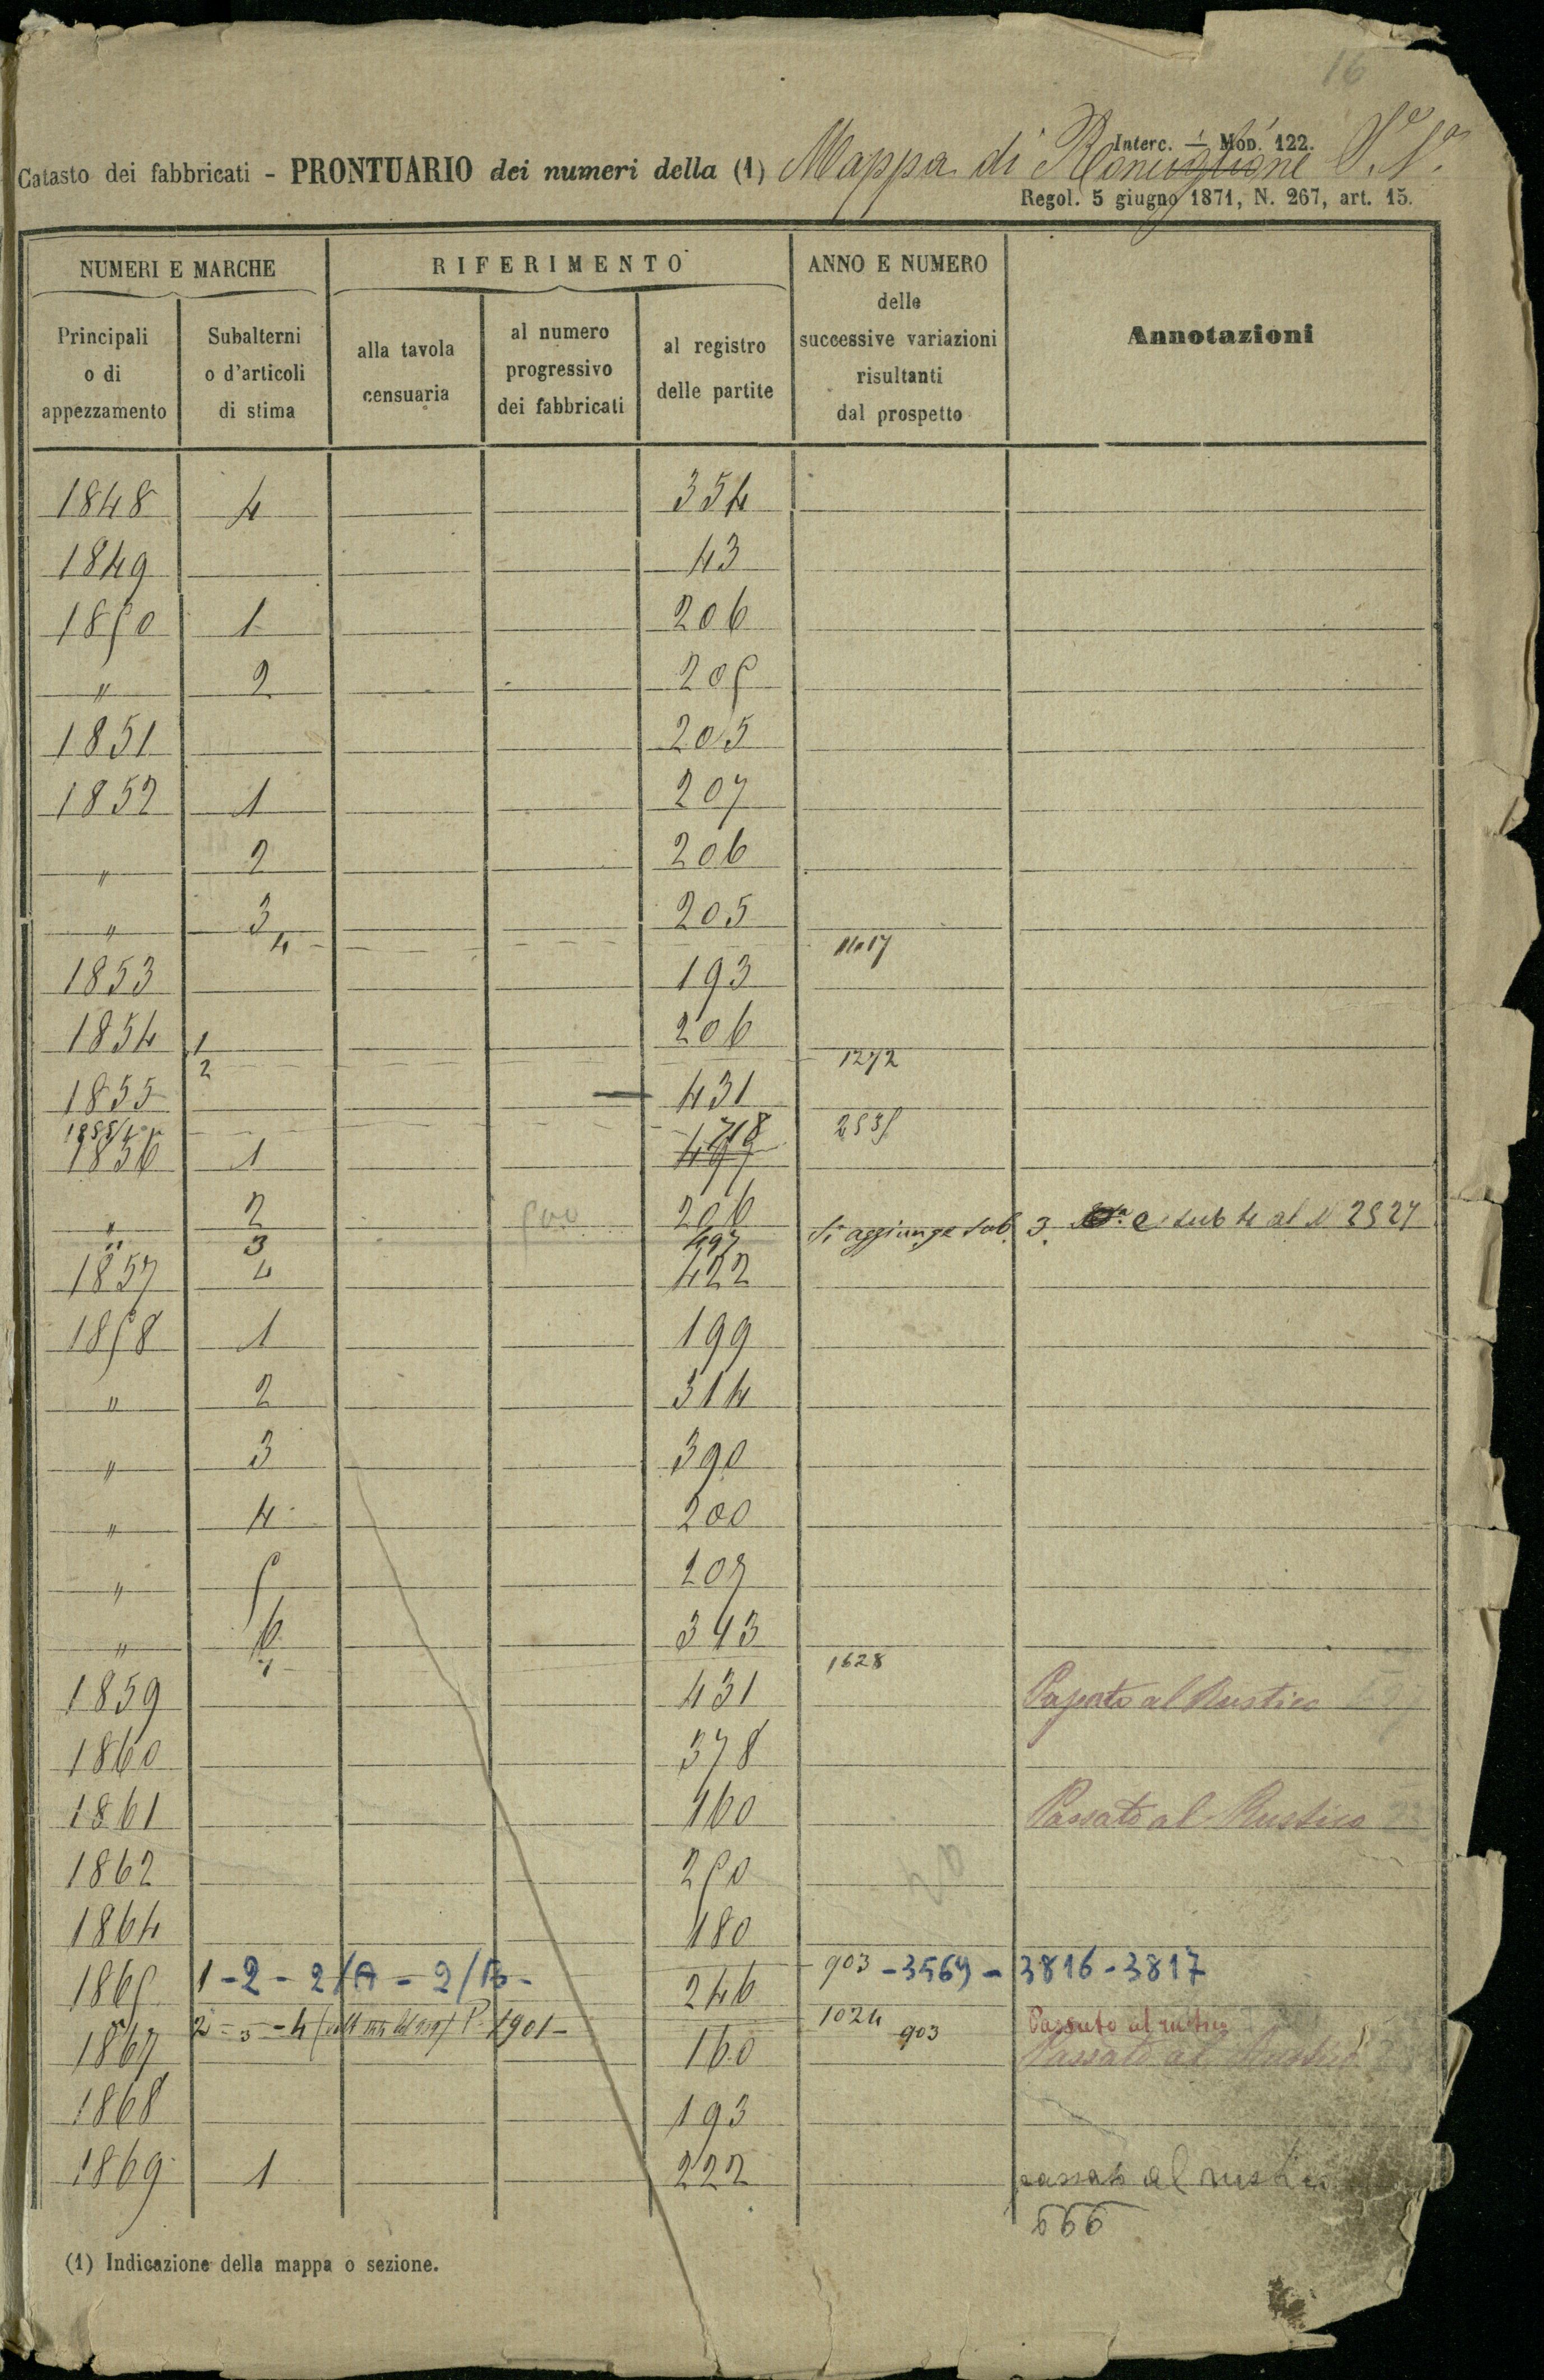 16
Interc. 1 Mod. 122.
Catasto dei fabbricati - PRONTUARIO dei numeri della (1) Mappa di Ronciglione
Regol. 5 giugno 1871, N. 267, art. 15.
NUMERI E MARCHE RIFERIMENTO ANNO E NUMERO delle successive variazioni risultanti dal prospetto Annotazioni
Principali o di appezzamento Subalterni o d'articoli di stima alla tavola censuaria al numero progressivo dei fabbricati al registro delle partite
1848 4 354
1849 43
1850 1 206
" 2 205
1851 205
1852 1 207
" 2 206
" 3 205
4
1853 193
1854 1 206
2 1272
1855 431
718 2535
1856 1 497
" 2 500 206 Si aggiunge sub. 3. e sub 4 al N 2527
" 3 497
1857 4 422
1858 1 199
" 2 314
" 3 390
" 4 200
" 5 207
" 6 343
7 1628
1859 431 Passato al Rustico
1860 378
1861 160 Passato al Rustico
1862 250
1864 180
1865 1-2-2/A-2/B- 246 903-3569-3816-3817
2-3-4 1901- 1024 Passato al rustico
1867 160 903 Passato al Rustico
1868 193
1869 1 222 passato al rustico
666
(1) Indicazione della mappa o sezione.